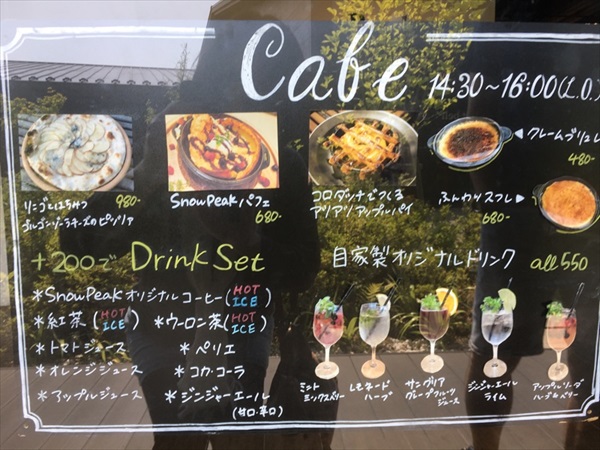 Cafe 14:30～16:00(L.O.)
リンゴとはちみつ 980-
ゴルゴンゾーラチーズのピッツァ
SnowPeakパフェ
680-
コロダッチでつくる
アツアツアップルパイ
クレームブリュレ
480-
ふんわりスフレ
680-
+200で Drink Set
*SnowPeakオリジナルコーヒー(HOT ICE)
*紅茶(HOT ICE) *ウーロン茶(HOT ICE)
*トマトジュース *ペリエ
*オレンジジュース *コカ・コーラ
*アップルジュース *ジンジャーエール
(甘口・辛口)
自家製オリジナルドリンク all 550
ミント
ミックスベリー
レモネード
ハーブ
サングリア
グレープフルーツ
ジュース
ジンジャーエール
ライム
アップルソーダ
ハーブ&ベリー